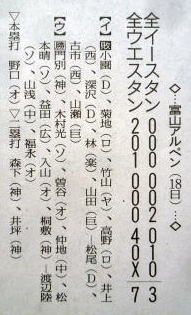 ◇…富山アルペン(18日)…◇
全イースタン 000 002 010 3
全ウエスタン 201 000 40X 7
【イ】小園(D)、菊地(ロ)、竹山(ヤ)、高野(ロ)、井上
(西)、深沢(D)、林(楽)、山田(巨)、松尾(D)、
古市(西)、山瀬(巨)
【ウ】門別(神)、木村光(ソ)、曽谷(オ)、仲地(中)、松
本晴(ソ)、益田(広)、入山(オ)、桐敷(神)―渡辺陸
(ソ)、山浅(中)、福永(オ)
▽本塁打 野口(オ)▽二塁打 森下(神)、井坪(神)